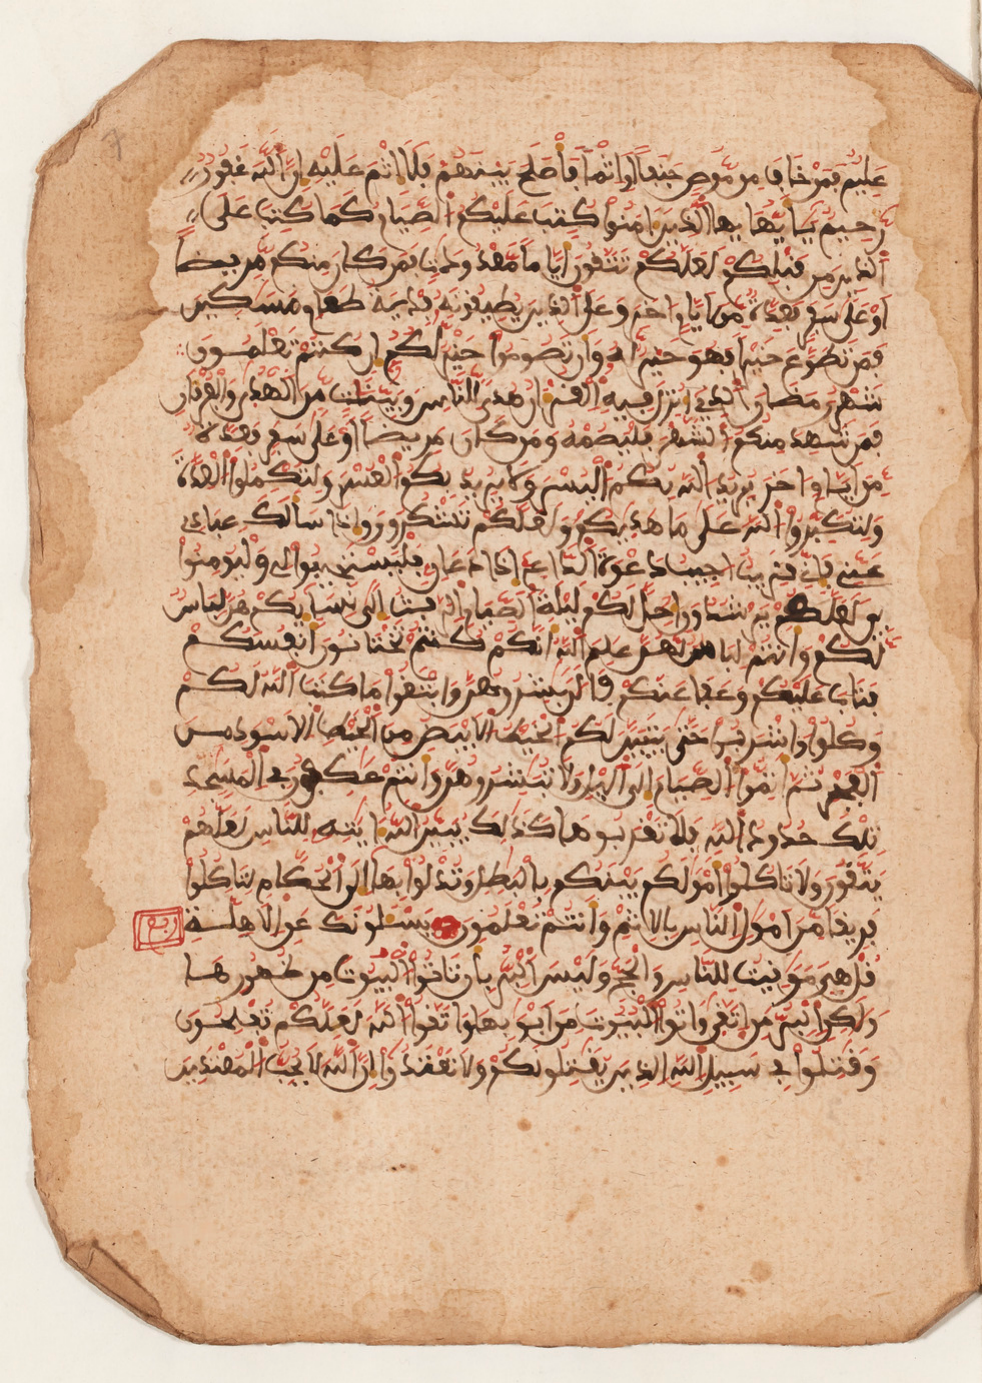 عليم فمن خاف من موص جنفا او اثما فاصلح بينهم فلا اثم عليه ان الله غفور
رحيم يايها الذين امنوا كتب عليكم الصيام كما كتب على
الذين من قبلكم لعلكم تتقون اياما معدودات فمن كان منكم مريضا
او على سفر فعدة من ايام اخر وعلى الذين يطيقونه فدية طعام مسكين
فمن تطوع خيرا فهو خير له وان تصوموا خير لكم ان كنتم تعلمون
شهر رمضان الذي انزل فيه القران هدى للناس وبينت من الهدى والفرقان
فمن شهد منكم الشهر فليصمه ومن كان مريضا او على سفر فعدة
من ايام اخر يريد الله بكم اليسر ولا يريد بكم العسر ولتكملوا العدة
ولتكبروا الله على ما هديكم ولعلكم تشكرون واذا سالك عبادي
عني فاني قريب اجيب دعوة الداع اذا دعان فليستجيبوا لي وليومنوا
بي لعلكم يرشدون احل لكم ليلة الصيام الرفث الى نسايكم هن لباس
لكم وانتم لباس لهن علم الله انكم كنتم تختانون انفسكم
فتاب عليكم وعفا عنكم فالن بشروهن وابتغوا ما كتب الله لكم
وكلوا واشربوا حتى يتبين لكم الخيط الابيض من الخيط الاسود من
الفجر ثم اتموا الصيام الى اليل ولا تبشروهن وانتم عكفون في المسجد
تلك حدود الله فلا تقربوها كذلك يبين الله ايته للناس لعلهم
يتقون ولا تاكلوا امولكم بينكم بالبطل وتدلوا بها الى الحكام لتاكلوا
فريقا من امول الناس بالاثم وانتم تعلمون يسلونك عن الاهلة
ربع
قل هي موقيت للناس والحج وليس البر بان تاتوا البيوت من ظهورها
ولكن البر من اتقى واتوا البيوت من ابوبها واتقوا الله لعلكم تفلحون
وقتلوا في سبيل الله الذين يقتلونكم ولا تعتدوا ان الله لا يحب المعتدين